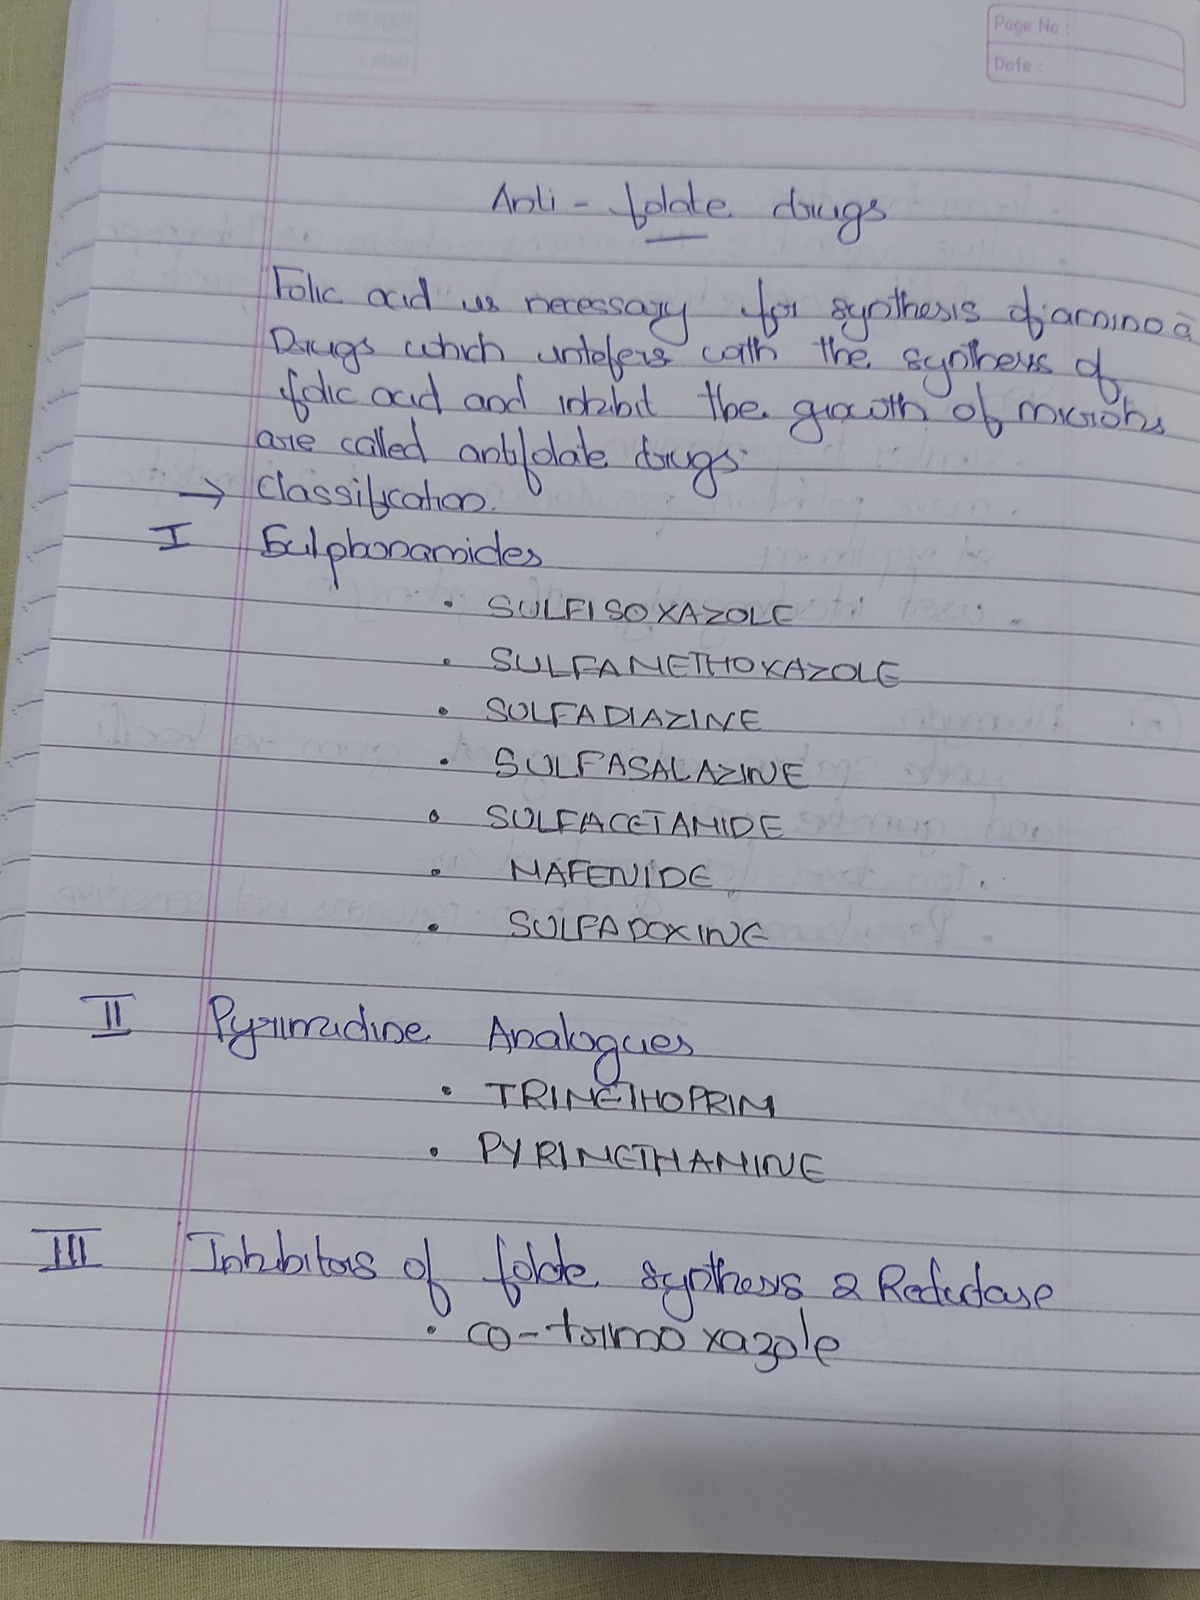 Page No :
Date :
Anti - folate drugs
Folic acid is necessary for synthesis of amino a
Drugs which intefers with the synthesis of
folic acid and inhibit the growth of microbs
are called antifolate drugs.
→ Classification.
I Sulphonamides
• SULFISOXAZOLE
• SULFAMETHOXAZOLE
• SULFADIAZINE
• SULFASALAZINE
• SULFACETAMIDE
• MAFENIDE
• SULFADOXINE
II Pyrimidine Analogues
• TRIMETHOPRIM
• PYRIMETHAMINE
III Inhibitors of folate synthesis & Reductase
• co-trimoxazole